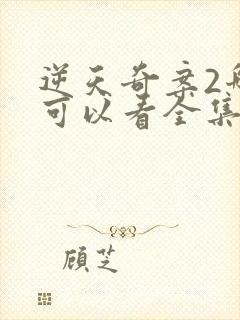 逆天奇案2
可以看全集
顾芝